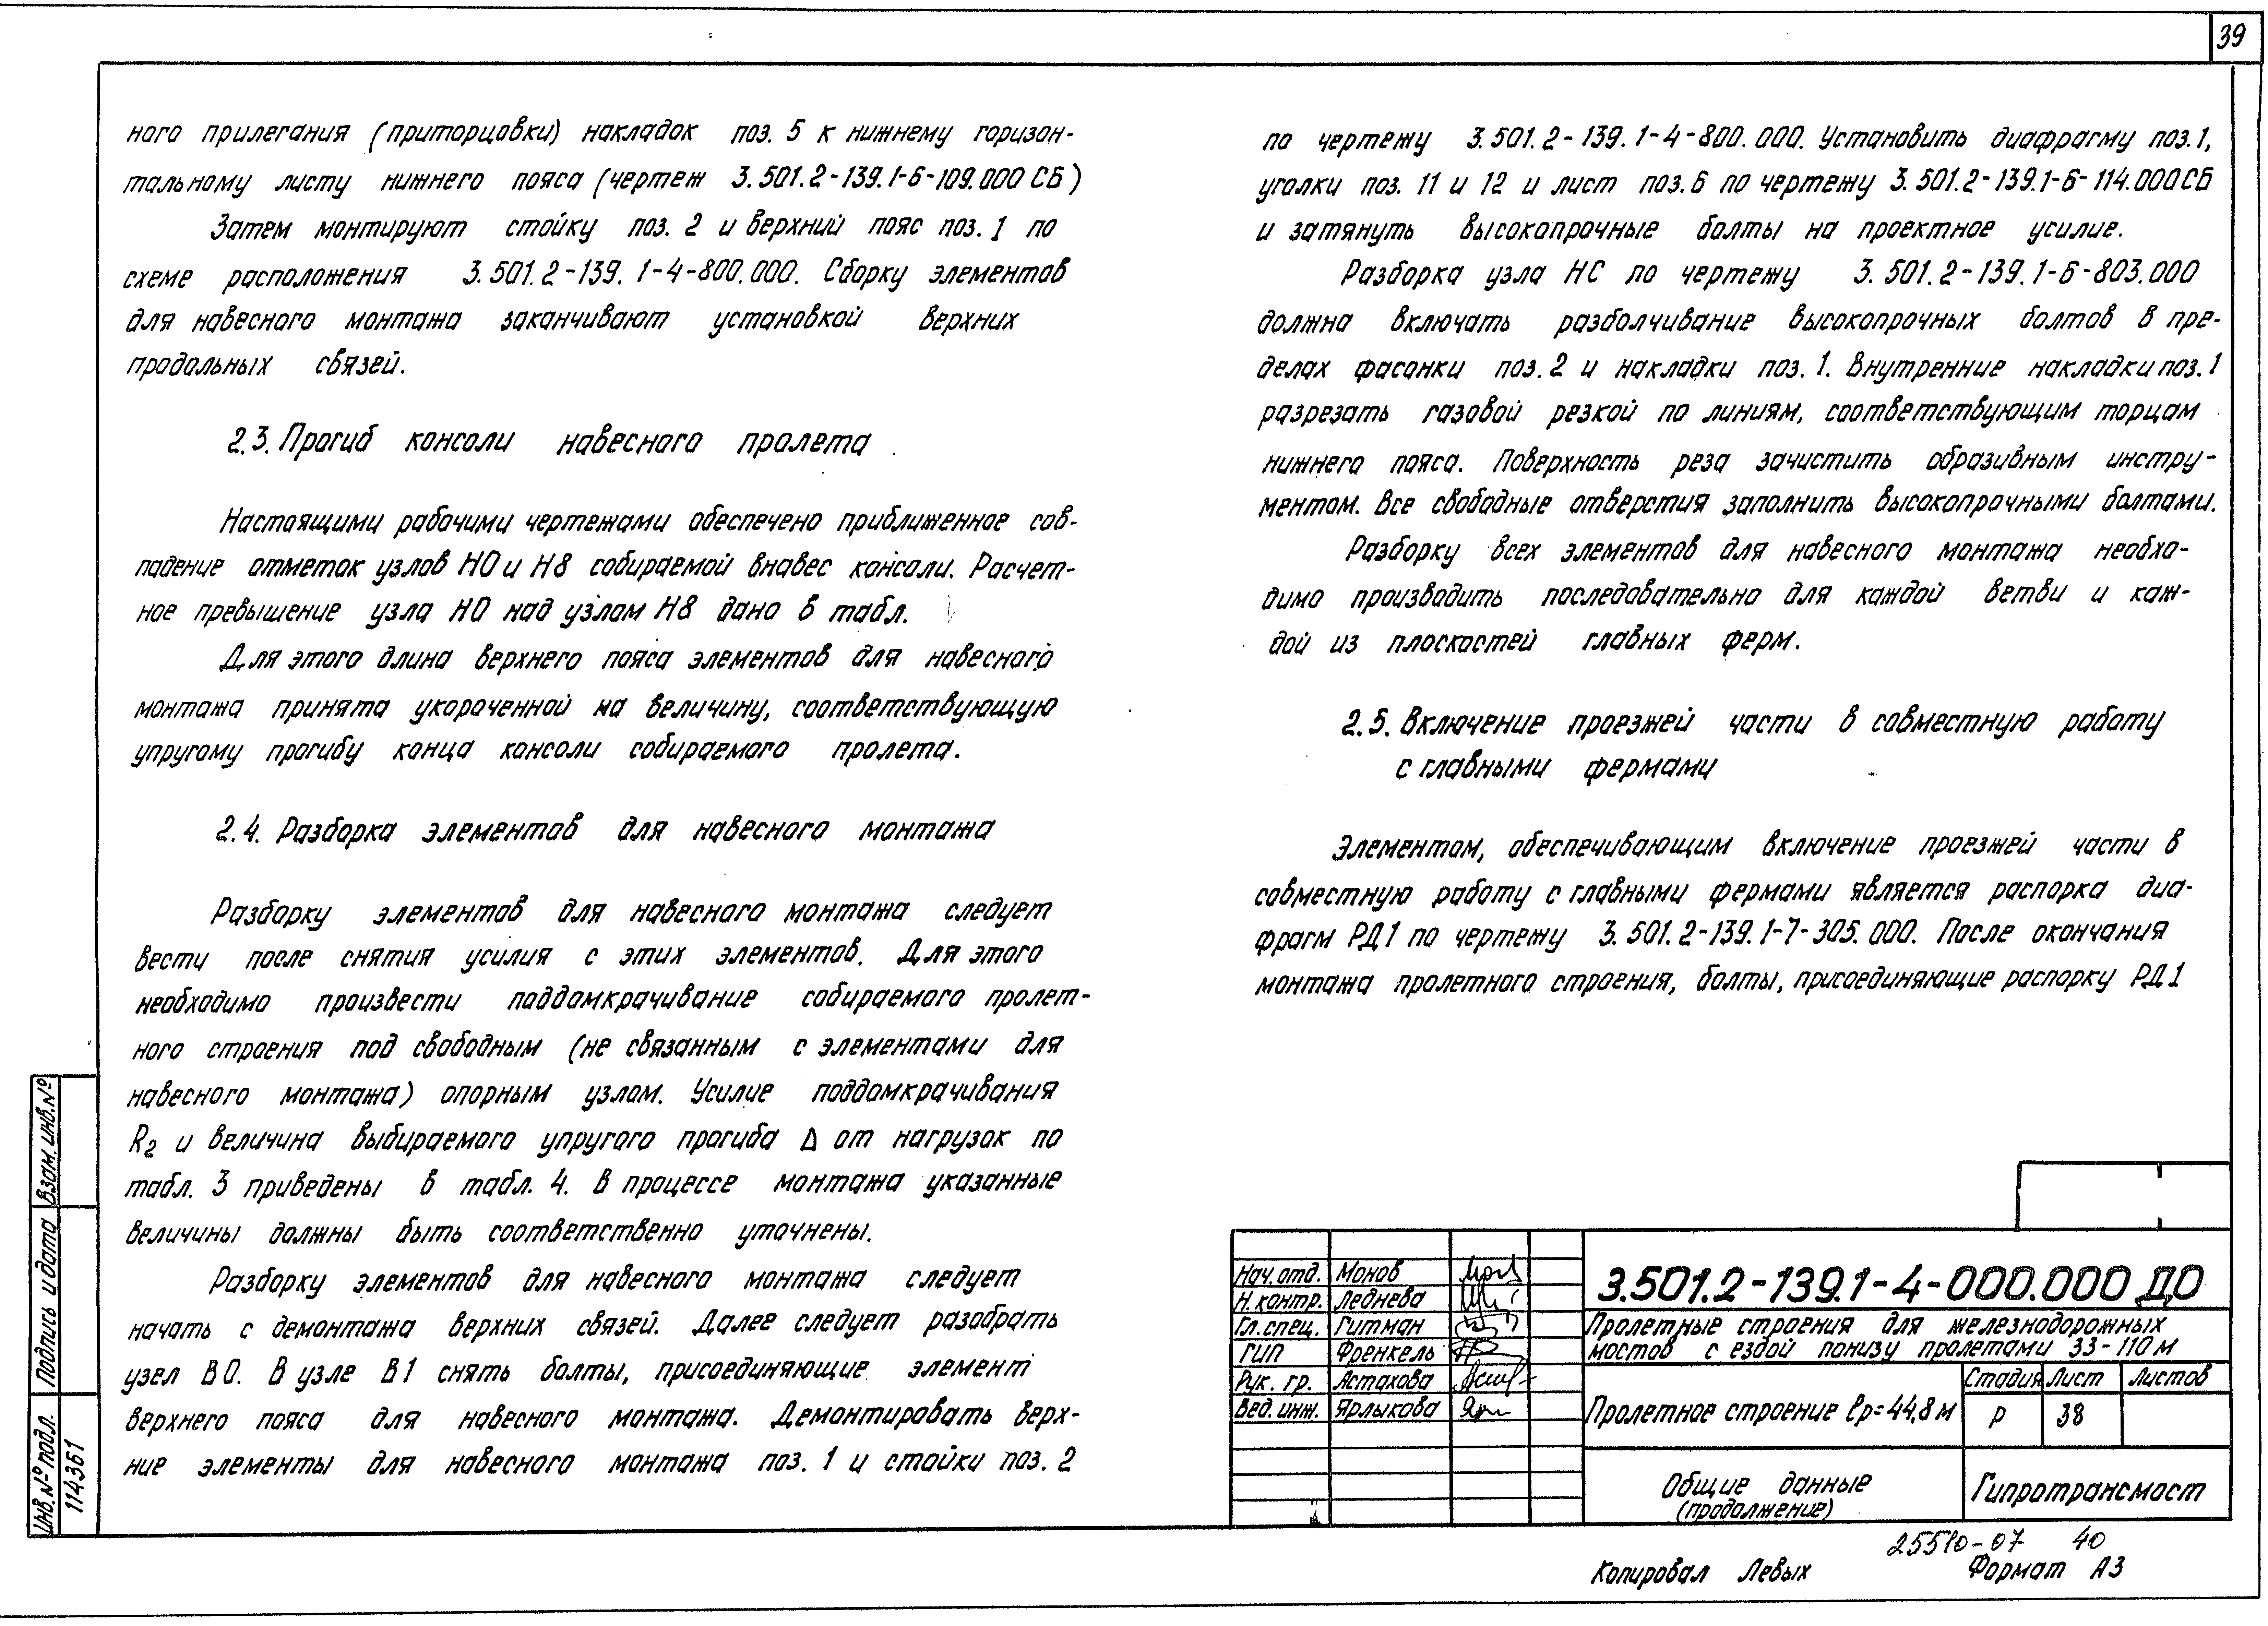 39
ного прилегания (приторцовки) накладок поз. 5 к нижнему горизон-
тальному листу нижнего пояса (чертеж 3.501.2-139.1-6-109.000 СБ)
Затем монтируют стойку поз. 2 и верхний пояс поз. 1 по
схеме расположения 3.501.2-139.1-4-800.000. Сборку элементов
для навесного монтажа заканчивают установкой верхних
продольных связей.
2.3. Прогиб консоли навесного пролета
Настоящими рабочими чертежами обеспечено приближенное сов-
падение отметок узлов Н0 и Н8 собираемой внавес консоли. Расчет-
ное превышение узла Н0 над узлом Н8 дано в табл.
Для этого длина верхнего пояса элементов для навесного
монтажа принята укороченной на величину, соответствующую
упругому прогибу конца консоли собираемого пролета.
2.4. Разборка элементов для навесного монтажа
Разборку элементов для навесного монтажа следует
вести после снятия усилия с этих элементов. Для этого
необходимо произвести поддомкрачивание собираемого пролет-
ного строения под свободным (не связанным с элементами для
навесного монтажа) опорным узлом. Усилие поддомкрачивания
R2 и величина выбираемого упругого прогиба Δ от нагрузок по
табл. 3 приведены в табл. 4. В процессе монтажа указанные
величины должны быть соответственно уточнены.
Разборку элементов для навесного монтажа следует
начать с демонтажа верхних связей. Далее следует разобрать
узел В0. В узле В1 снять болты, присоединяющие элемент
верхнего пояса для навесного монтажа. Демонтировать верх-
ние элементы для навесного монтажа поз. 1 и стойки поз. 2
по чертежу 3.501.2-139.1-4-800.000. Установить диафрагму поз.1,
уголки поз. 11 и 12 и лист поз.6 по чертежу 3.501.2-139.1-6-114.000СБ
и затянуть высокопрочные болты на проектное усилие.
Разборка узла НС по чертежу 3.501.2-139.1-6-803.000
должна включать разболчивание высокопрочных болтов в пре-
делах фасонки поз.2 и накладки поз.1. Внутренние накладки поз.1
разрезать газовой резкой по линиям, соответствующим торцам
нижнего пояса. Поверхность реза зачистить образивным инстру-
ментом. Все свободные отверстия заполнить высокопрочными болтами.
Разборку всех элементов для навесного монтажа необхо-
димо производить последовательно для каждой ветви и каж-
дой из плоскостей главных ферм.
2.5. Включение проезжей части в совместную работу
с главными фермами
Элементом, обеспечивающим включение проезжей части в
совместную работу с главными фермами является распорка диа-
фрагм РД1 по чертежу 3.501.2-139.1-7-305.000. После окончания
монтажа пролетного строения, болты, присоединяющие распорку РД1
Инв. № подл. Подпись и дата Взам. инв. №
114361
Нач. отд. Монов
Н. контр. Леднева
Гл. спец. Гитман
ГИП Френкель
Рук. гр. Астахова
Вед. инж. Ярлыкова
3.501.2-139.1-4-000.000 ДО
Пролетные строения для железнодорожных
мостов с ездой понизу пролетами 33-110 м
Пролетное строение lр=44,8 м
Стадия Лист Листов
Р 38
Общие данные
(продолжение)
Гипротрансмост
25510-07 40
Копировал Левых Формат А3